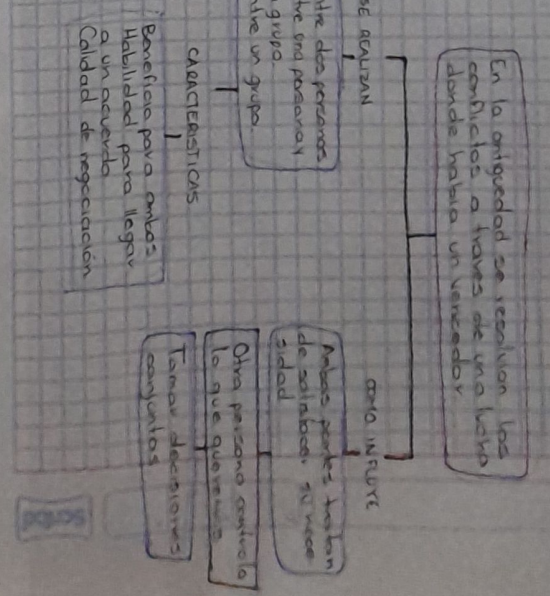 En la antiguedad se resolvian los
conflictos a traves de una lucha
donde habia un vencedor
SE REALIZAN
tre dos personas
tre una persona y
grupo.
tre un grupo.
CARACTERISTICAS
Beneficio para ambos
Habilidad para llegar
a un acuerdo
Calidad de negociación
COMO INFLUYE
Ambas partes tratan
de satisfacer su nece
sidad
Otra persona controla
lo que queremos
Tomar decisiones
conjuntas
Scribe